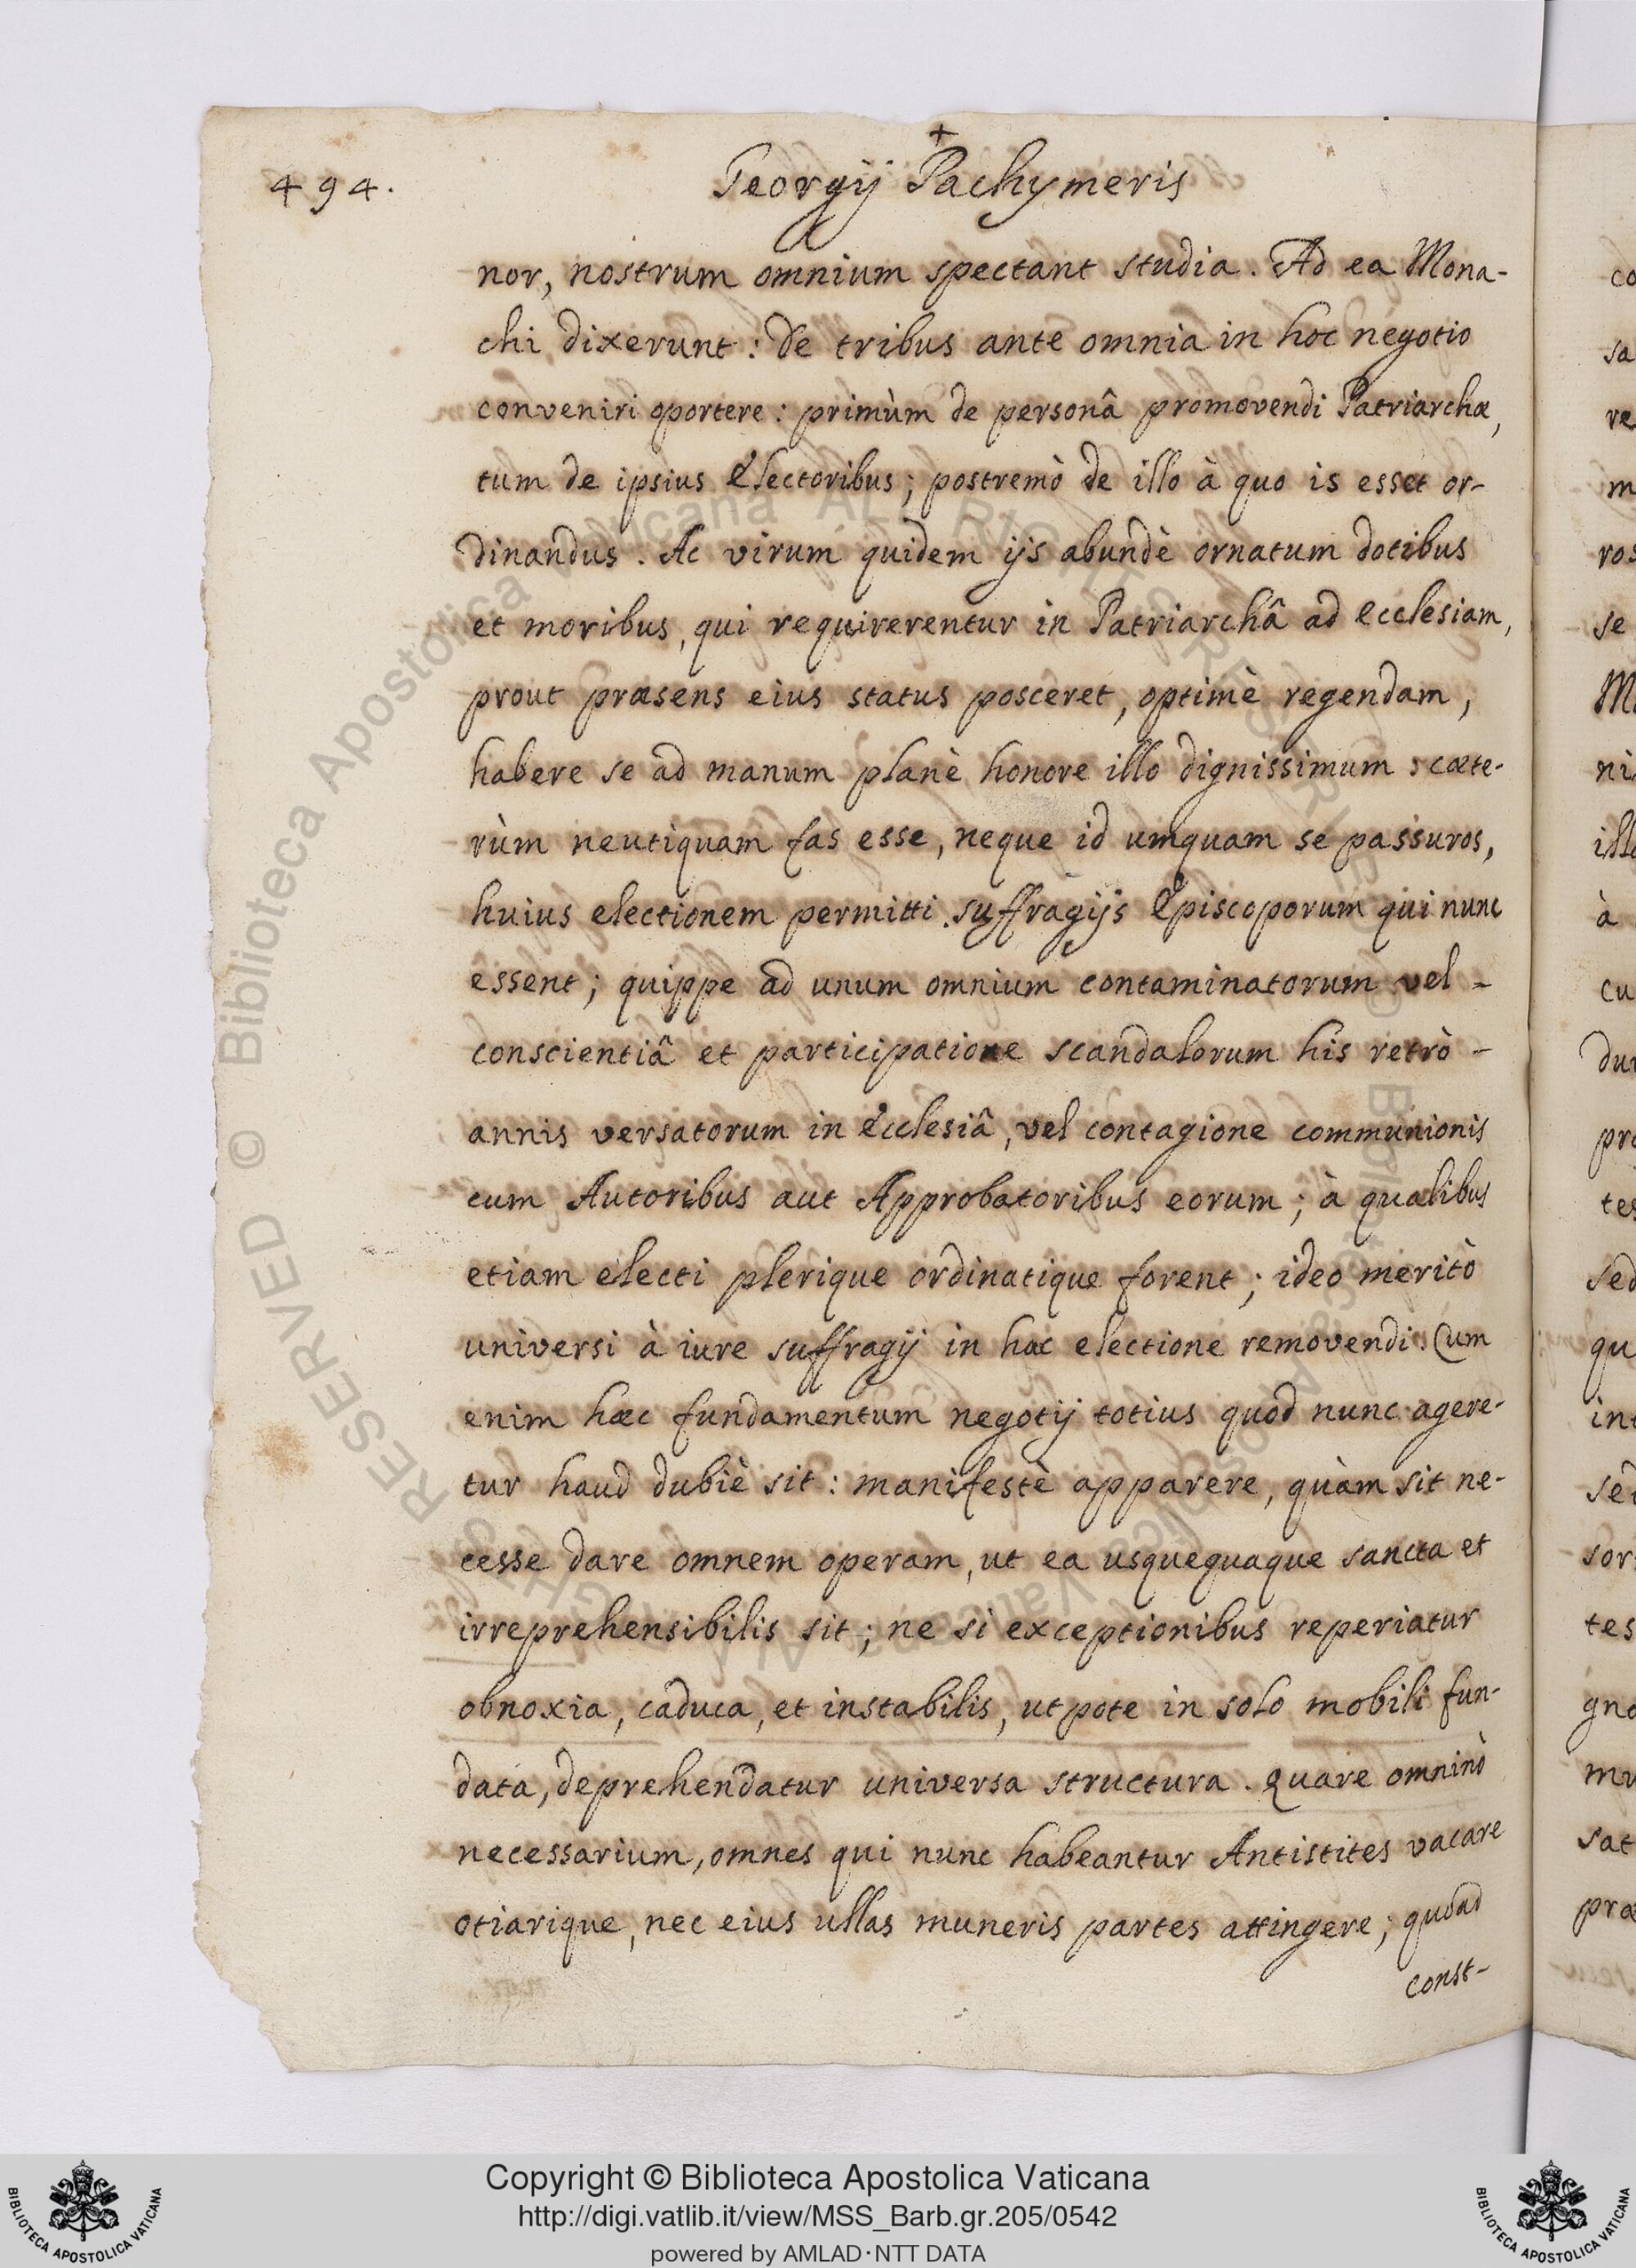 494.
+
Georgij Pachymeris
nor, nostrum omnium spectant studia. Ad ea Mona-
chi dixerunt: de tribus ante omnia in hoc negotio
conveniri oportere: primùm de personâ promovendi Patriarchæ,
tum de ipsius Electoribus; postremò de illo à quo is esset or-
dinandus. Ac virum quidem ijs abundè ornatum dotibus
et moribus, qui requirerentur in Patriarchâ ad Ecclesiam,
prout præsens eius status posceret, optimè regendam,
habere se ad manum planè honore illo dignissimum: cæte-
rùm neutiquam fas esse, neque id umquam se passuros,
huius electionem permitti suffragijs Episcoporum qui nunc
essent; quippe ad unum omnium contaminatorum vel -
conscientiâ et participatione scandalorum his retrò -
annis versatorum in Ecclesiâ, vel contagione communionis
cum Autoribus aut Approbatoribus eorum; à qualibus
etiam electi plerique ordinatique forent; ideo meritò
universi à iure suffragij in hac electione removendi. Cum
enim hæc fundamentum negotij totius quod nunc agere-
tur haud dubiè sit: manifestè apparere, quàm sit ne-
cesse dare omnem operam, ut ea usquequaque sancta et
irreprehensibilis sit; ne si exceptionibus reperiatur
obnoxia, caduca, et instabilis, utpote in solo mobili fun-
data, deprehendatur universa structura. Quare omninò
necessarium, omnes qui nunc habeantur Antistites vacare
otiarique, nec eius ullas muneris partes attingere; quoad
const-
co
sa
re
m
ros
se
ni
illo
à
cu
pro
tes
sed
qu
int
sor
tes
gno
mu
sat
præ
© Biblioteca Apostolica Vaticana ALL RIGHTS RESERVED © Biblioteca Apostolica Vaticana ALL RIGHTS RESERVED
Copyright © Biblioteca Apostolica Vaticana
http://digi.vatlib.it/view/MSS_Barb.gr.205/0542
powered by AMLAD·NTT DATA
BIBLIOTECA APOSTOLICA VATICANA
BIBLIOTECA APOSTOLICA VATICANA